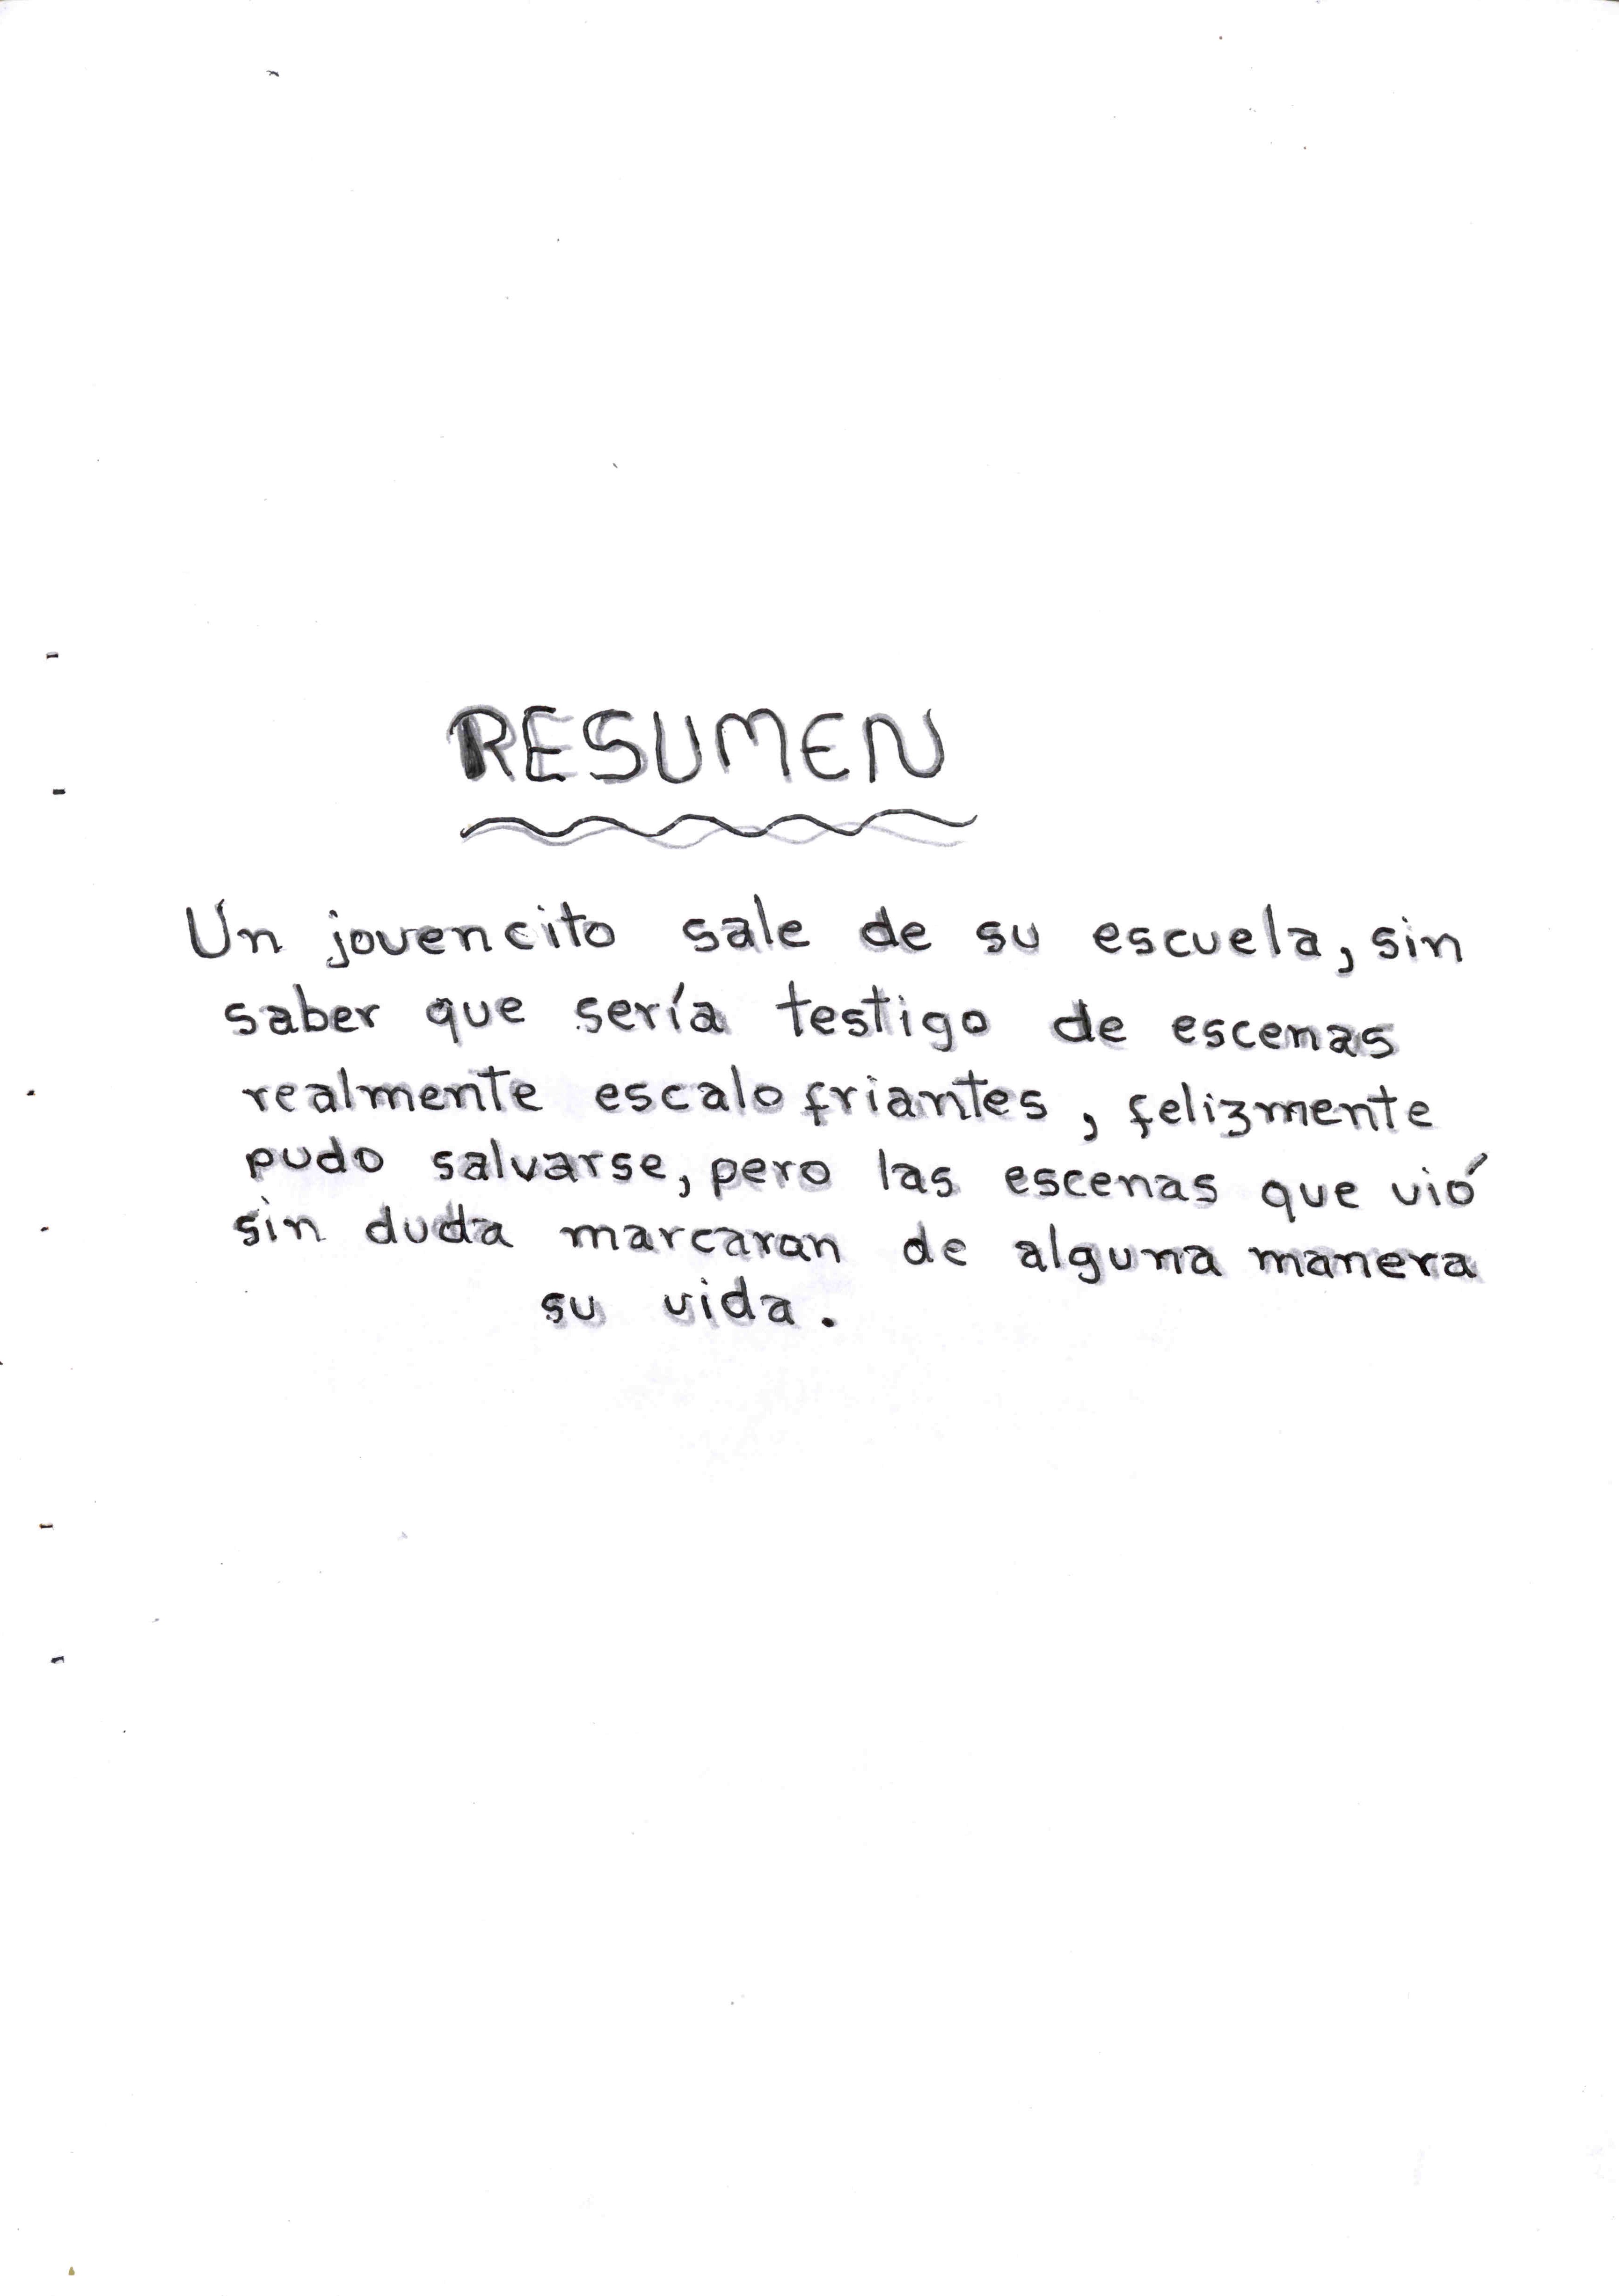 RESUMEN
Un jovencito sale de su escuela, sin
saber que sería testigo de escenas
realmente escalofriantes, felizmente
pudo salvarse, pero las escenas que vió
sin duda marcaran de alguna manera
su vida.